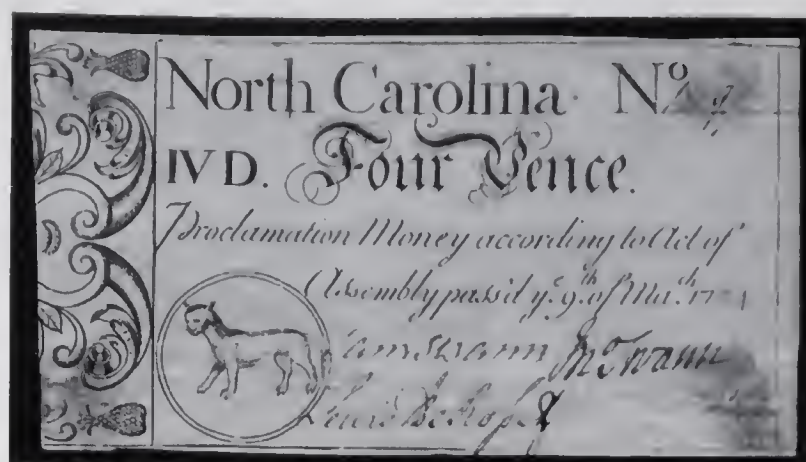 North Carolina. Nº
IV D. Four Pence.
Proclamation Money according to Act of
Assembly pass'd yᵉ 9ᵗʰ of Marᵗʰ 17
Swann Swann